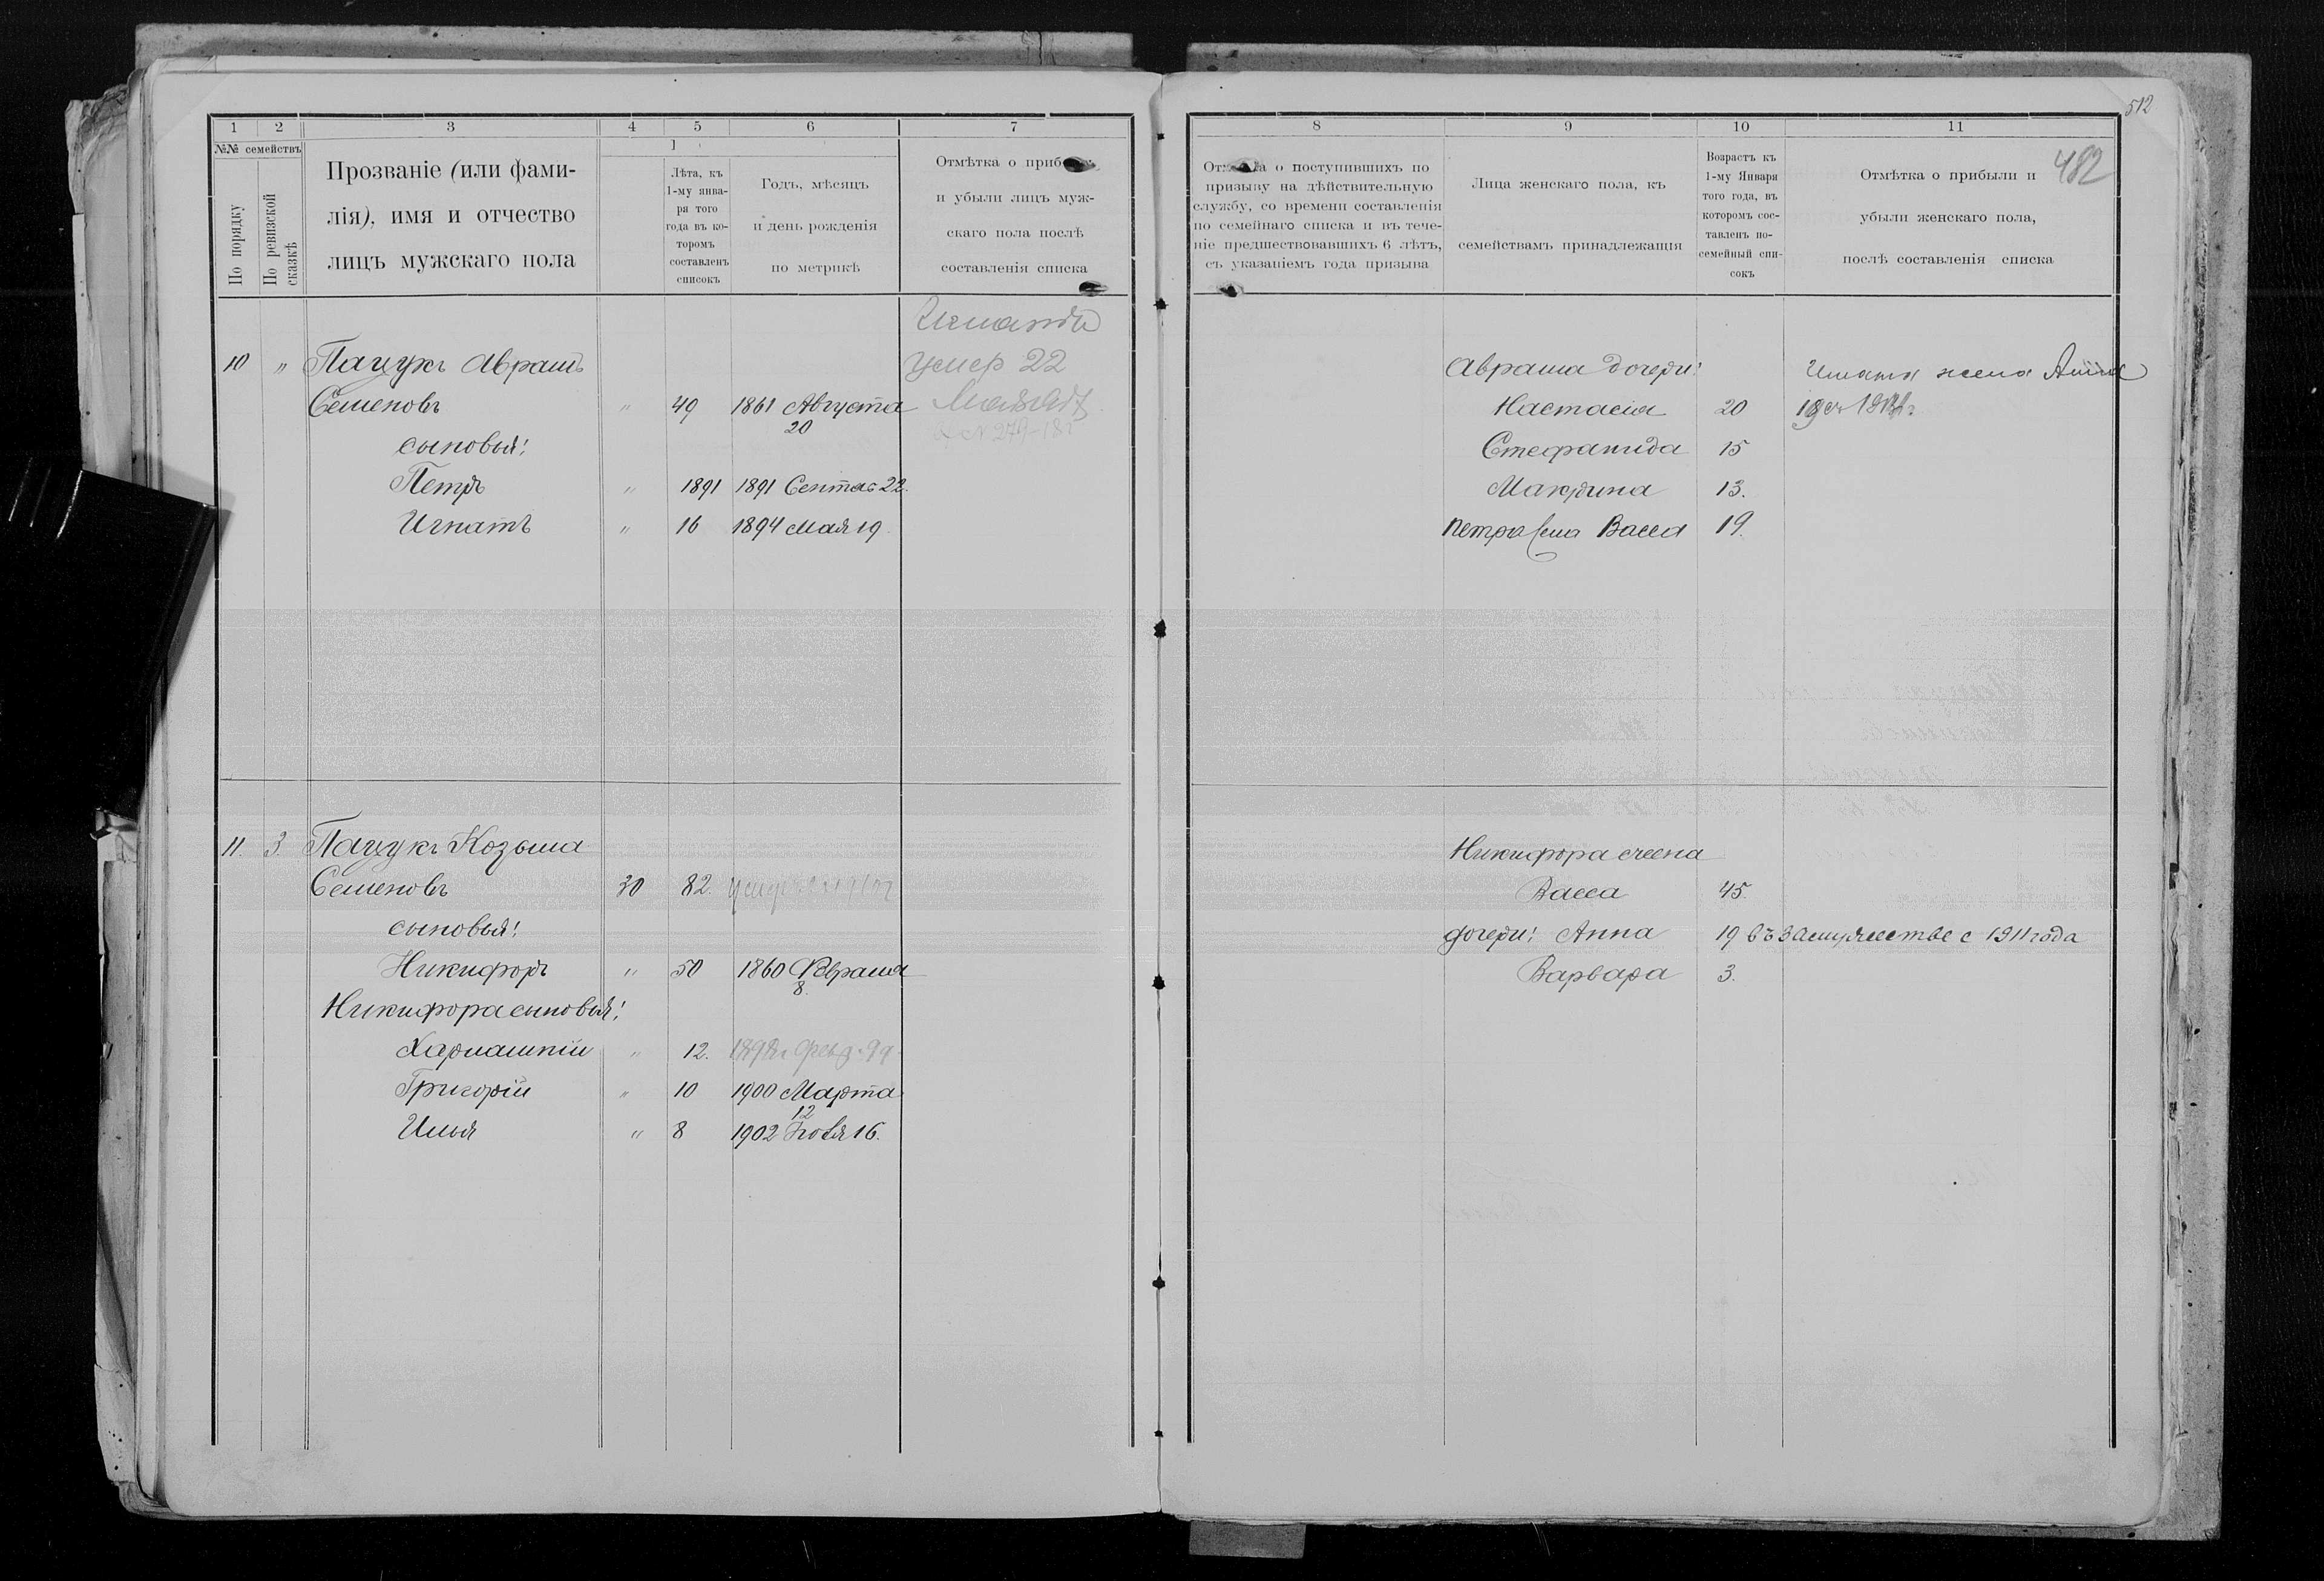 512
482
1 2 3 4 5 6 7
№№ семействъ
По порядку
По ревизской сказкѣ
Прозваніе (или фами-
лія), имя и отчество
лицъ мужскаго пола
Лѣта, къ
1-му янва-
ря того
года въ ко-
торомъ
составленъ
списокъ
Годъ, мѣсяцъ
и день рожденія
по метрикѣ
Отмѣтка о
и убыли лицъ муж-
скаго пола послѣ
составленія списка
10 " Пацукъ Аврамъ
умер 22
Семеновъ " 49 1861 Августа
20
сыновья:
Петръ " 1891 1891 Сентяб 22.
Игнатъ " 16 1894 Мая 19
11. 3. Пацукъ Козьма
Семеновъ 30 82.
сыновья:
Никифоръ " 50 1860 Февраля
8.
Никифора сыновья:
" 12.
Григорій " 10 1900 Марта
12
Илья " 8 1902 16.
8 9 10 11
о поступившихъ по
призыву на дѣйствительную
службу, со времени составленія
по семейнаго списка и въ тече-
ніе предшествовавшихъ 6 лѣтъ,
съ указаніемъ года призыва
Лица женскаго пола, къ
семействамъ принадлежащія
Возрастъ къ
1-му Января
того года, въ
которомъ сос-
тавленъ по-
семейный спи-
сокъ
Отмѣтка о прибыли и
убыли женскаго пола,
послѣ составленія списка
Аврама дочери:
жена Анна
Настасія 20
Стефанида 15
Макрина 13.
Петра жена Васса 19.
Никифора жена
Васса 45.
дочери: Анна 19 въ замужестве с 1911 года
Варвара 3.